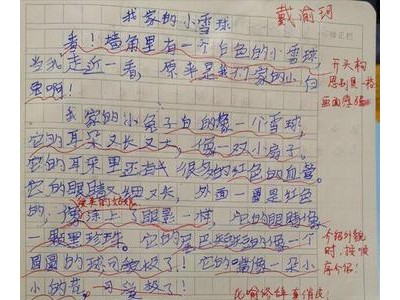 我家的小雪球
戴渝珂
看！墙角里有一个白色的小雪球，
当我走近一看，原来是我们家的小白
兔啊！
开头构
思别具一格
画面感强
我家的小兔子白的像一个雪球，
它的耳朵又长又大，像一双小扇子。
它的耳朵里还有很多的红色的血管。
它的眼睛又细又长，外面一圈是红色
的，像涂上了眼影一样，它的眼睛像
一颗黑珍珠。它的尾巴短短的像一个
圆圆的球可敬极了！它的嘴像一朵小
小的花，可爱极了！
介绍外貌
时，按顺
序介绍！
比喻修辞真俏皮